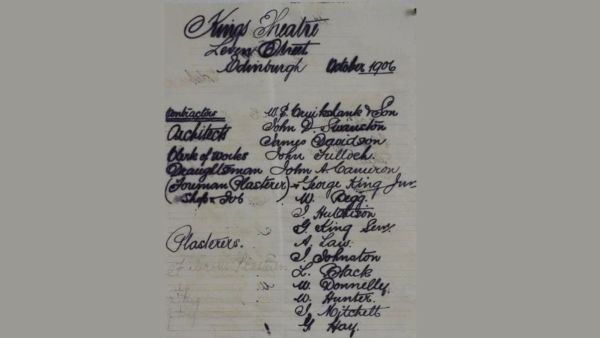 Kings Theatre
Leven Street
Edinburgh October 1906
Contractors W. S. Cruikshank & Son
Architects John D. Swanston
James Davidson
Clerk of Works John Tulloch.
Draughtsman John A Cameron
(Foreman Plasterer) George King Junr
Shop & Job W. Begg.
J Hutchison
G King Senr
Plasterers. A Law.
J. Johnston
L. Black
W. Donnelly.
W. Hunter.
J Mitchell
G Hay.